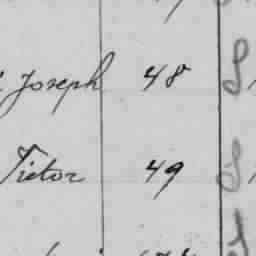 Joseph 48 S
Victor 49 S